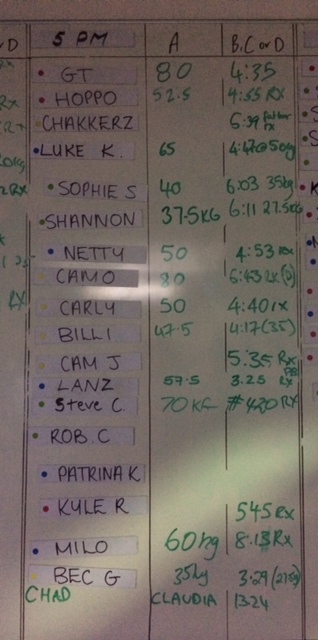 5 PM A B,C or D
GT 80 4:35
HOPPO 52.5 4:55 RX
CHAKKERZ 6:39
LUKE K. 65 4:47@50kg
SOPHIE S 40 6:03 35kg
SHANNON 37.5KG 6:11 27.5KG
NETTY 50 4:53 RX
CAMO 80 6:43
CARLY 50 4:40 rx
BILLI 47.5 4:17 (35)
CAM J 5.35 Rx
LANZ 57.5 3.25 Rx PB
Steve C. 70 KG 4:20 RX
ROB.C
PATRINA K
KYLE R 545 Rx
MILO 60kg 8.13 Rx
BEC G 35kg 3:29
CHAD CLAUDIA 13:24